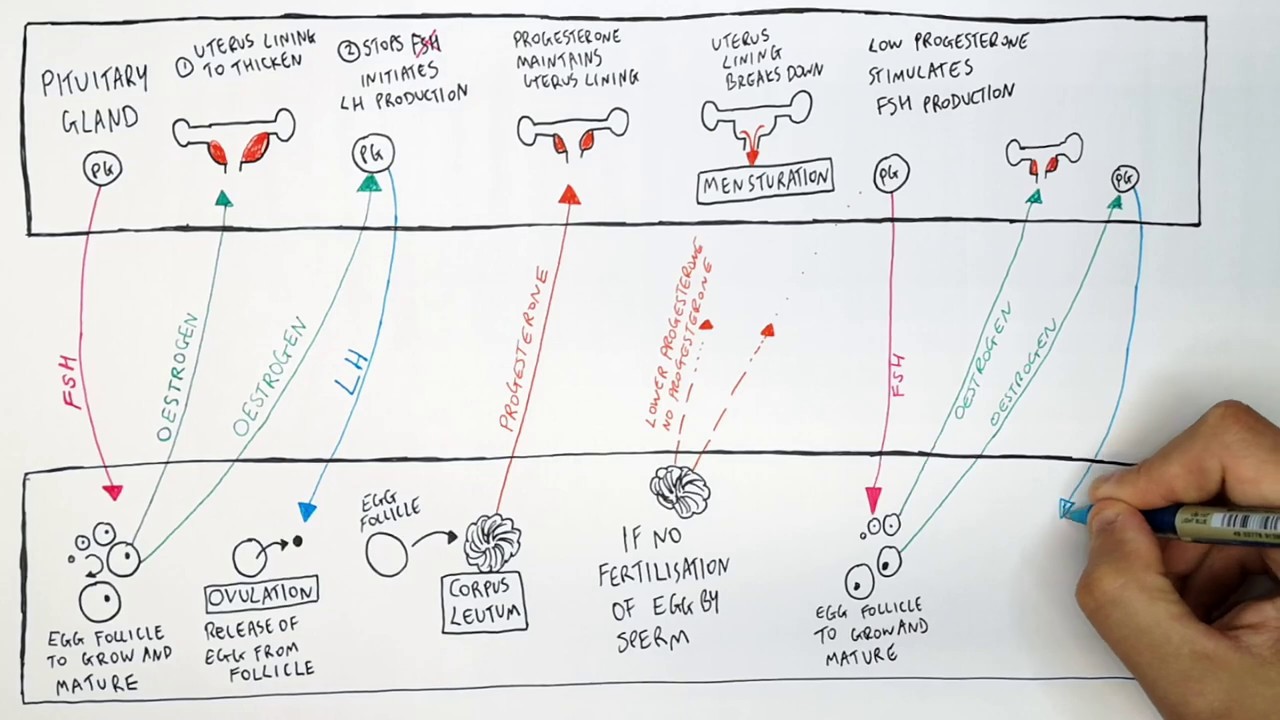 PITUITARY
GLAND
PG
FSH
① UTERUS LINING
TO THICKEN
OESTROGEN
OESTROGEN
② STOPS FSH
INITIATES
LH PRODUCTION
PG
LH
PROGESTERONE
MAINTAINS
UTERUS LINING
PROGESTERONE
UTERUS
LINING
BREAKS DOWN
MENSTURATION
LOWER PROGESTERONE
NO PROGESTERONE
LOW PROGESTERONE
STIMULATES
FSH PRODUCTION
PG
FSH
OESTROGEN
OESTROGEN
PG
EGG FOLLICLE
TO GROW AND
MATURE
OVULATION
RELEASE OF
EGG FROM
FOLLICLE
EGG
FOLLICLE
CORPUS
LEUTUM
IF NO
FERTILISATION
OF EGG BY
SPERM
EGG FOLLICLE
TO GROW AND
MATURE